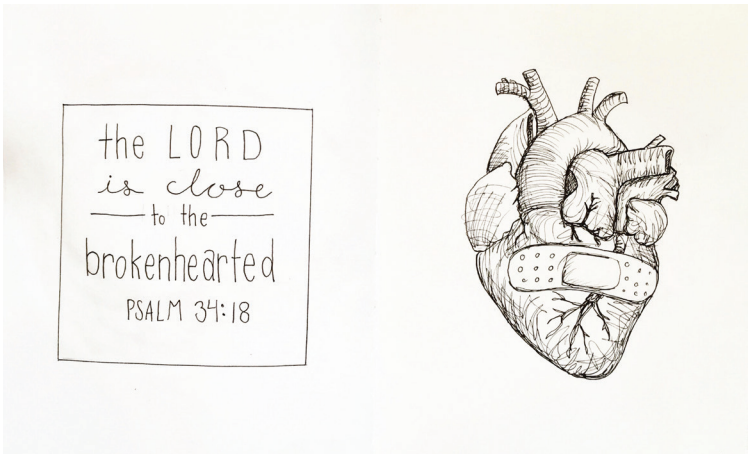 the LORD
is close
to the
brokenhearted
PSALM 34:18